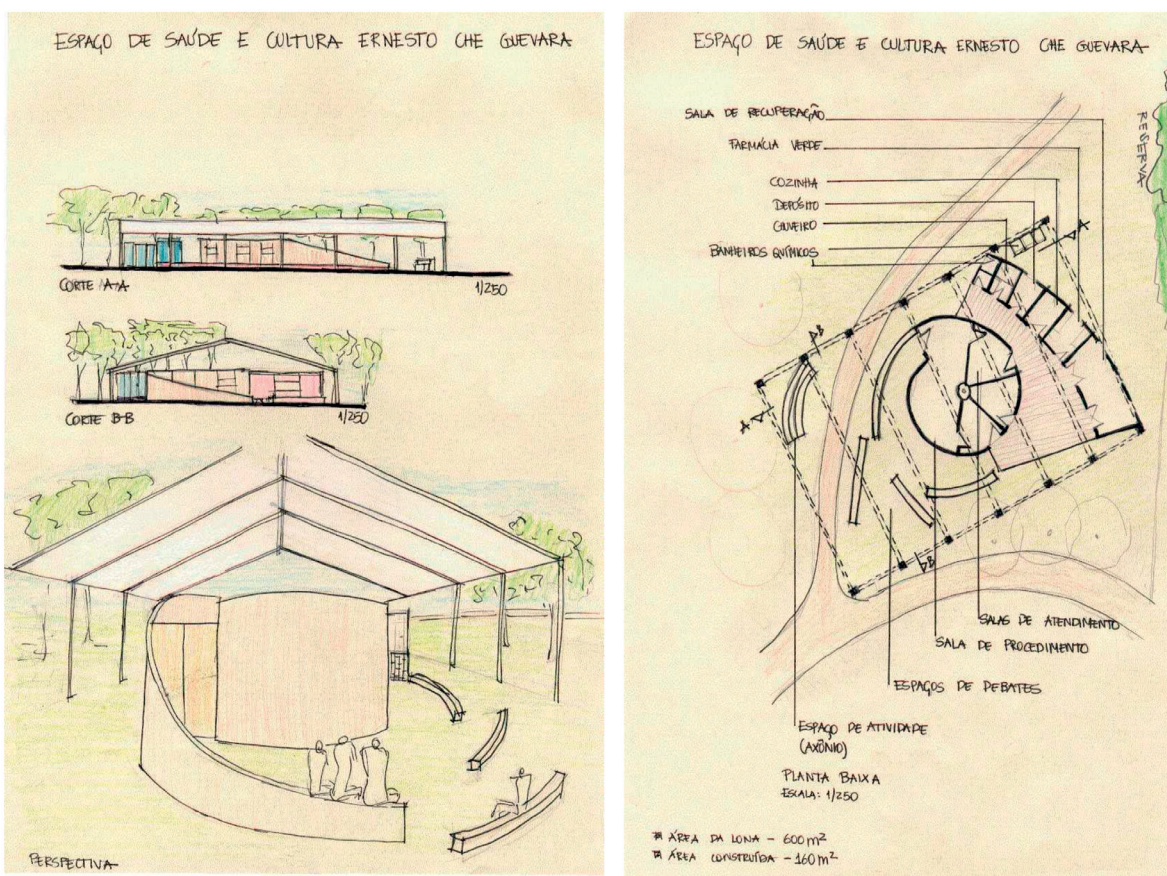 ESPAÇO DE SAÚDE E CULTURA ERNESTO CHE GUEVARA
CORTE A-A
1/250
CORTE B-B
1/250
PERSPECTIVA
ESPAÇO DE SAÚDE E CULTURA ERNESTO CHE GUEVARA
RESERVA
SALA DE RECUPERAÇÃO
FARMÁCIA VERDE
COZINHA
DEPÓSITO
CHUVEIRO
BANHEIROS QUÍMICOS
A
B
A
B
SALAS DE ATENDIMENTO
SALA DE PROCEDIMENTO
ESPAÇOS DE DEBATES
ESPAÇO DE ATIVIDADE
(AXÔNIO)
PLANTA BAIXA
ESCALA: 1/250
ÁREA DA LONA - 600m²
ÁREA CONSTRUÍDA - 160m²